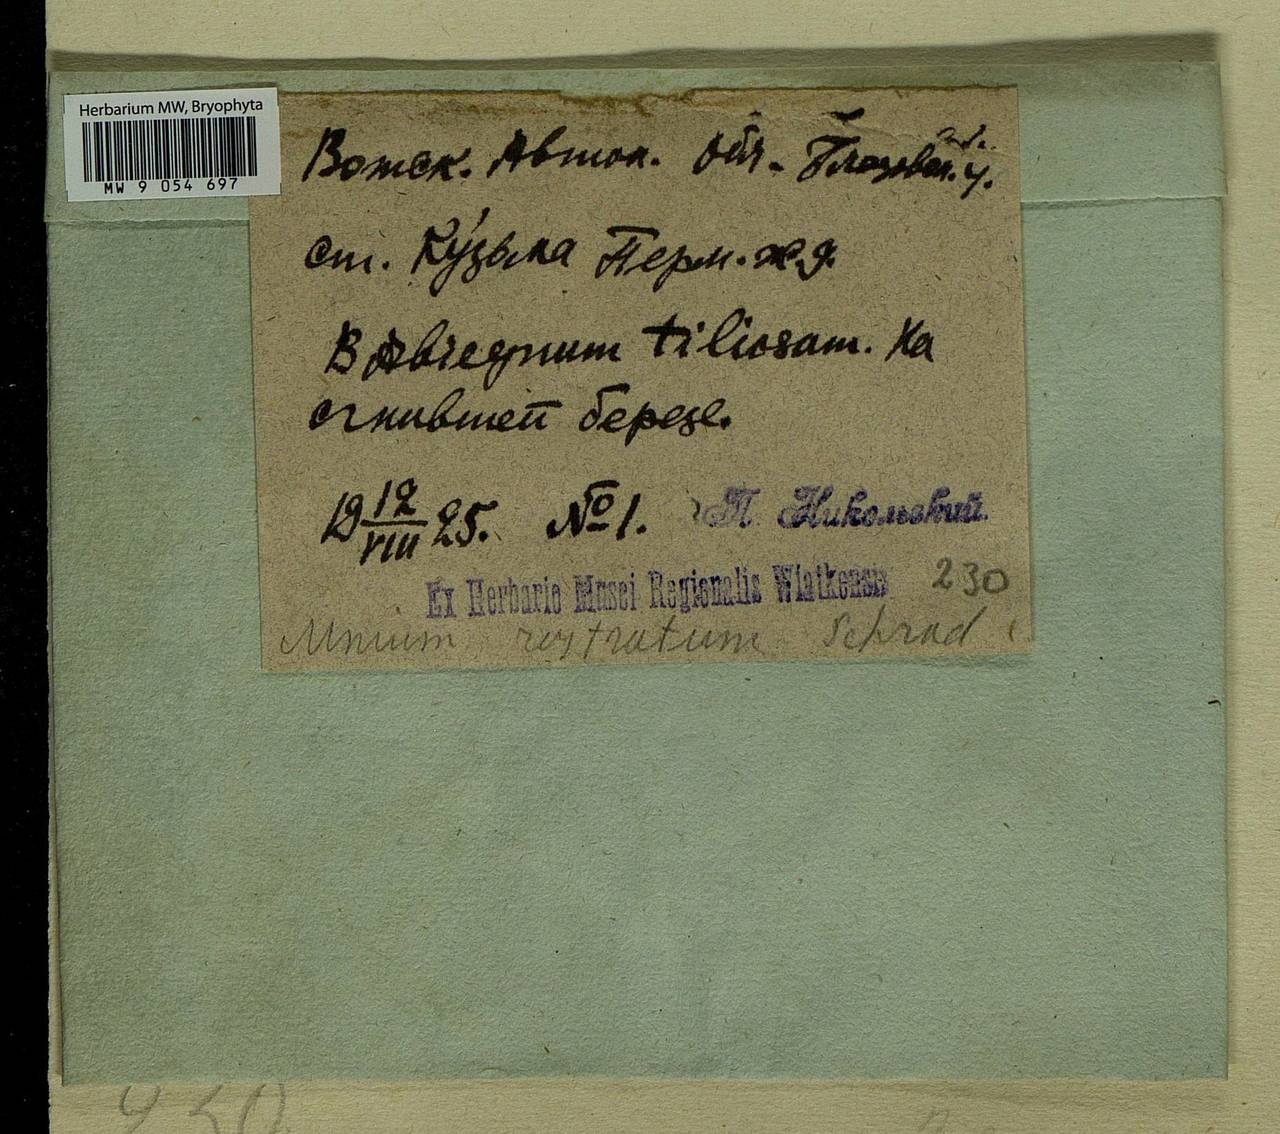 Herbarium MW, Bryophyta
MW 9 054 697
Вотск. Автон. обл. Глазовск. у.
ст. Ку́зьма Перм. ж.д.
В Abiegnum tiliosam. На
сгнившей березе.
19 12/VIII 25. №1. П. Никольский.
Ex Herbario Musei Regionalis Wiatkensis 230
Mnium rostratum Schrad